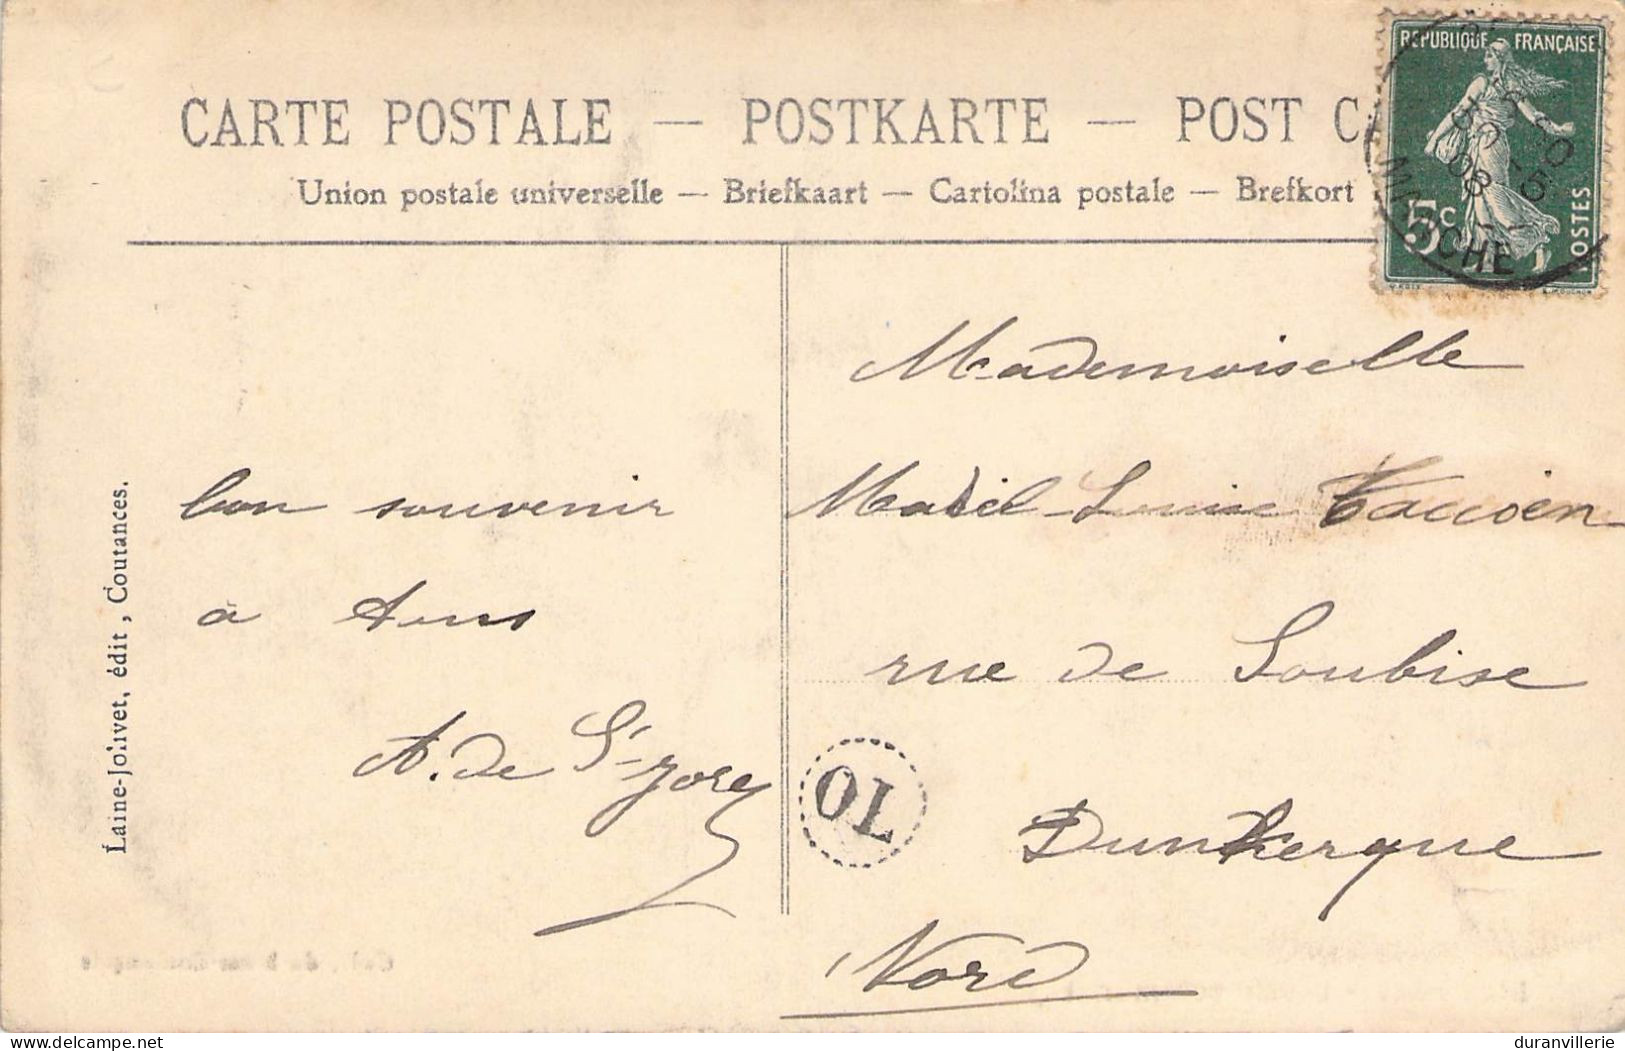 CARTE POSTALE — POSTKARTE — POST CA
Union postale universelle — Briefkaart — Cartolina postale — Brefkort
REPUBLIQUE FRANÇAISE
5c
POSTES
MANCHE
Laine-Jolivet, édit, Coutances.
bon souvenir
à tous
A. de St-Jores
Mademoiselle
Louise
rue de Soubise
Dunkerque
Nord
OL
delcampe.net
duranvillerie